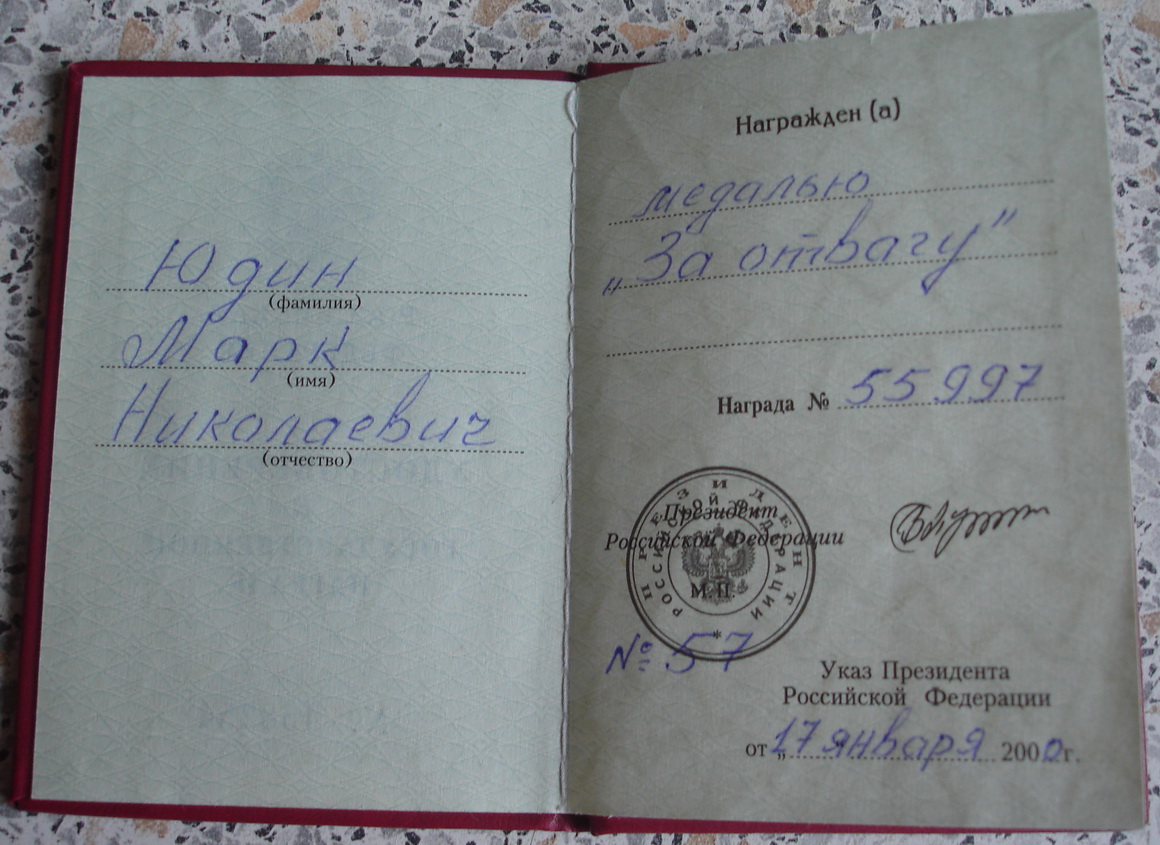 Юдин
(фамилия)
Марк
(имя)
Николаевич
(отчество)
Награжден (а)
медалью
„За отвагу"
Награда № 55997
Президент
Российской Федерации
М.П.
ПРЕЗИДЕНТ
РОССИЙСКОЙ ФЕДЕРАЦИИ
*
№ 57
Указ Президента
Российской Федерации
от „17 января 2000г.